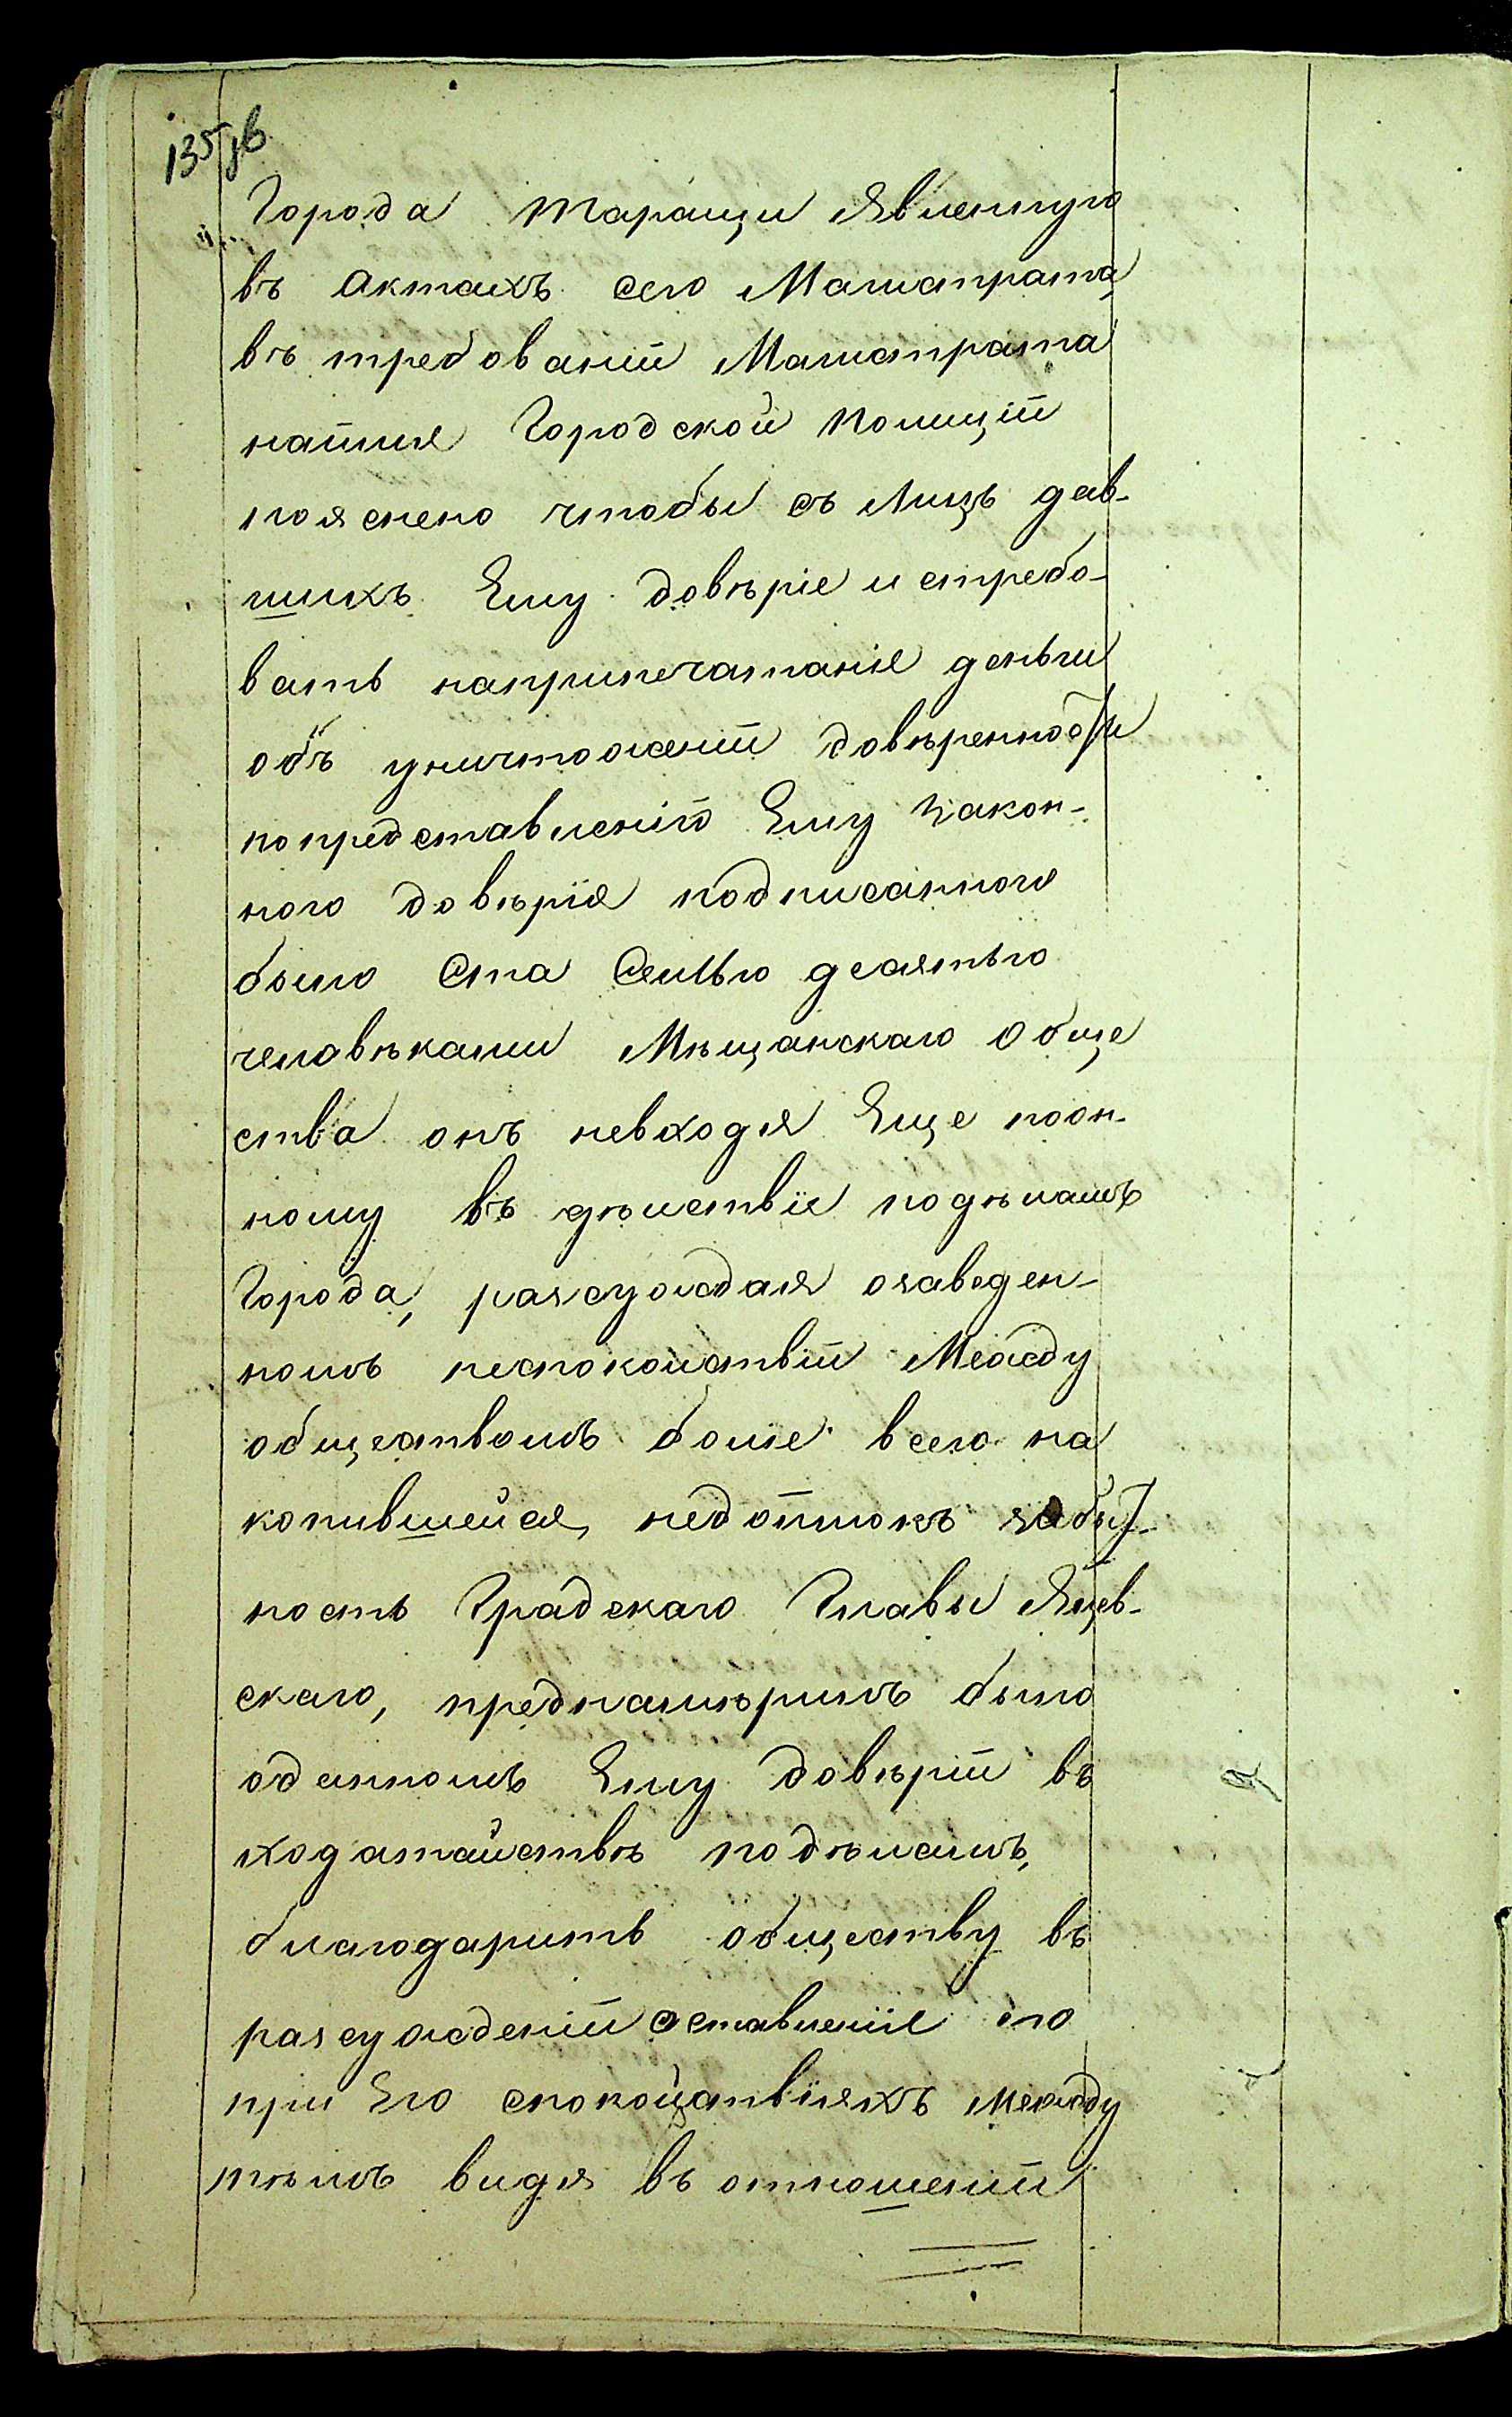 135 зв
Города Таращи Явленную
въ Актахъ сего Магистрата,
въ требованіи Магистрата
Городской Полиціи
пояснено чтобы съ Лицъ дав-
шихъ Ему довѣріе истребо-
вать наприпечатаніе деньги
объ уничтоженіи довѣренности
попредставленію Ему Закон-
ного довѣрія подписанного
было Ста Семью десятью
человѣками Мѣщанскаго Обще
ства онъ невходя Еще поон-
ному въ дѣиствіи подѣламъ
Города, разсуждая озаведен-
номъ неспокоиствіи Между
обществомъ болѣе всего на
копившейся недоимокъ забыт-
ность Градскаго Главы Яцев-
скаго, преднамѣримъ было
оданномъ Ему довѣріи въ
ходатайствѣ подѣламъ,
благодарить обществу въ
разсужденіи оставленіе его
при Его спокойствіяхъ между
тѣмъ видя въ отношеніи